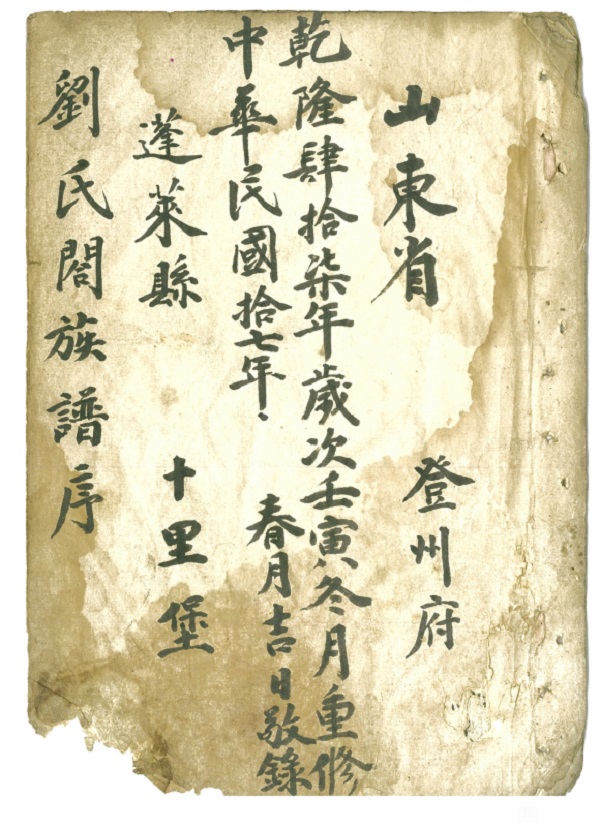 山東省 登州府
乾隆肆拾柒年歲次壬寅冬月重修
中華民國拾七年 春月吉日敬錄
蓬萊縣 十里堡
劉氏閤族譜序